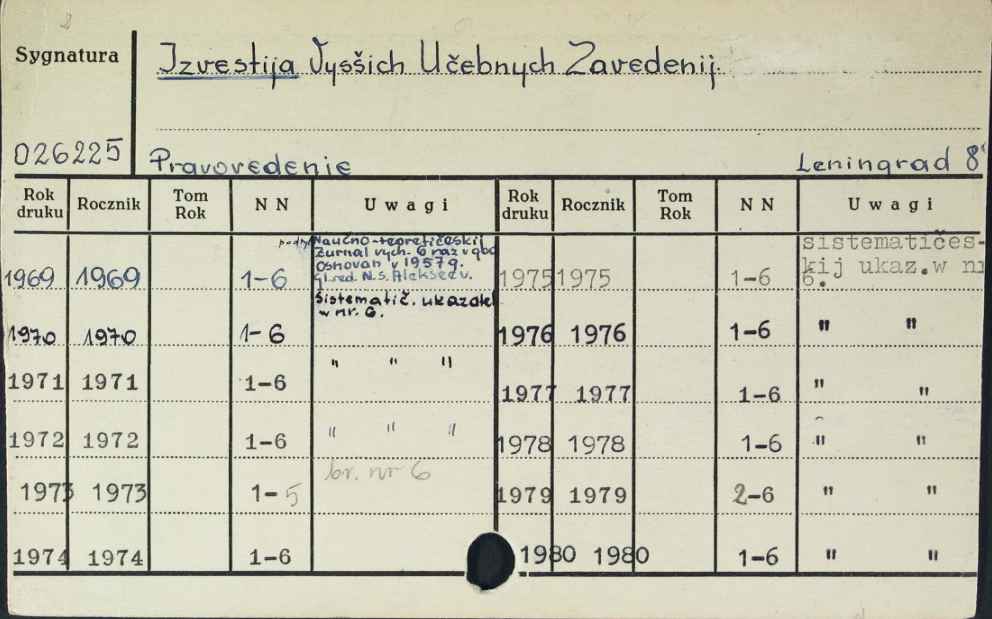 Sygnatura
Izvestija Vysšich Učebnych Zavedenij.
026225
Pravovedenie Leningrad 8°
Rok druku Rocznik Tom Rok N N Uwagi Rok druku Rocznik Tom Rok N N Uwagi
Naučno-teoretičeskij
Žurnal vych. 6 raz v god
Osnovan v 1957 g.
Gl. red. N.S. Alekseev.
1969 1969 1-6
Sistematič. ukazatel
w nr. 6.
1975 1975 1-6 sistematičes-
kij ukaz. w nr
6.
1970 1970 1-6
1976 1976 1-6 " "
1971 1971 1-6 " " "
1977 1977 1-6 " "
1972 1972 1-6 " " "
1978 1978 1-6 " "
br. nr 6
1973 1973 1-5
1979 1979 2-6 " "
1974 1974 1-6
1980 1980 1-6 " "